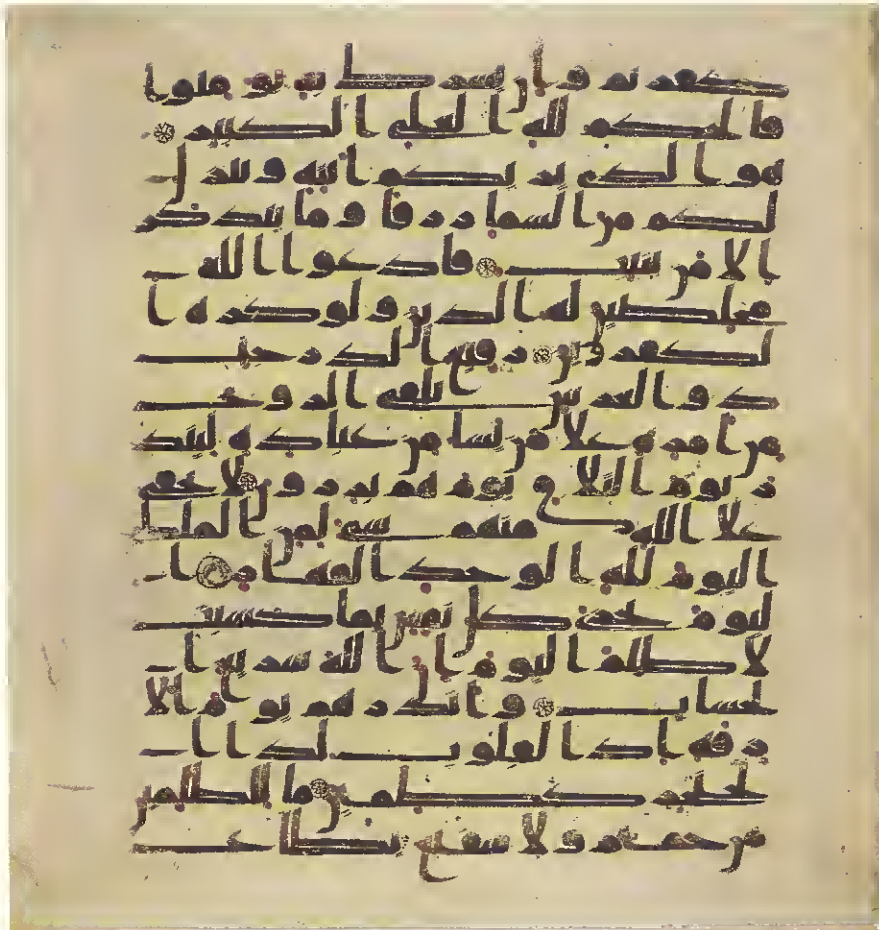 كفرتم وان يشرك به تومنوا
فالحكم لله العلي الكبير
هو الذي يريكم ايته وينزل
لكم من السما رزقا وما يتذكر
الا من ينيب فادعوا الله
مخلصين له الدين ولو كره ا
لكفرون رفيع الدرجت
ذو العرش يلقي الروح
من امره علي من يشا من عباده لينذ
ر يوم التلاق يوم هم برزون لا يخفي
علي الله منهم شي لمن الملك
اليوم لله الوحد القهار ا
ليوم تجزي كل نفس بما كسبت
لا ظلم اليوم ان الله سريع ا
لحساب وانذرهم يوم الا
زفة اذ القلوب لدا ا
لحناجر كظمين ما للظلمين
من حميم ولا شفيع يطاع